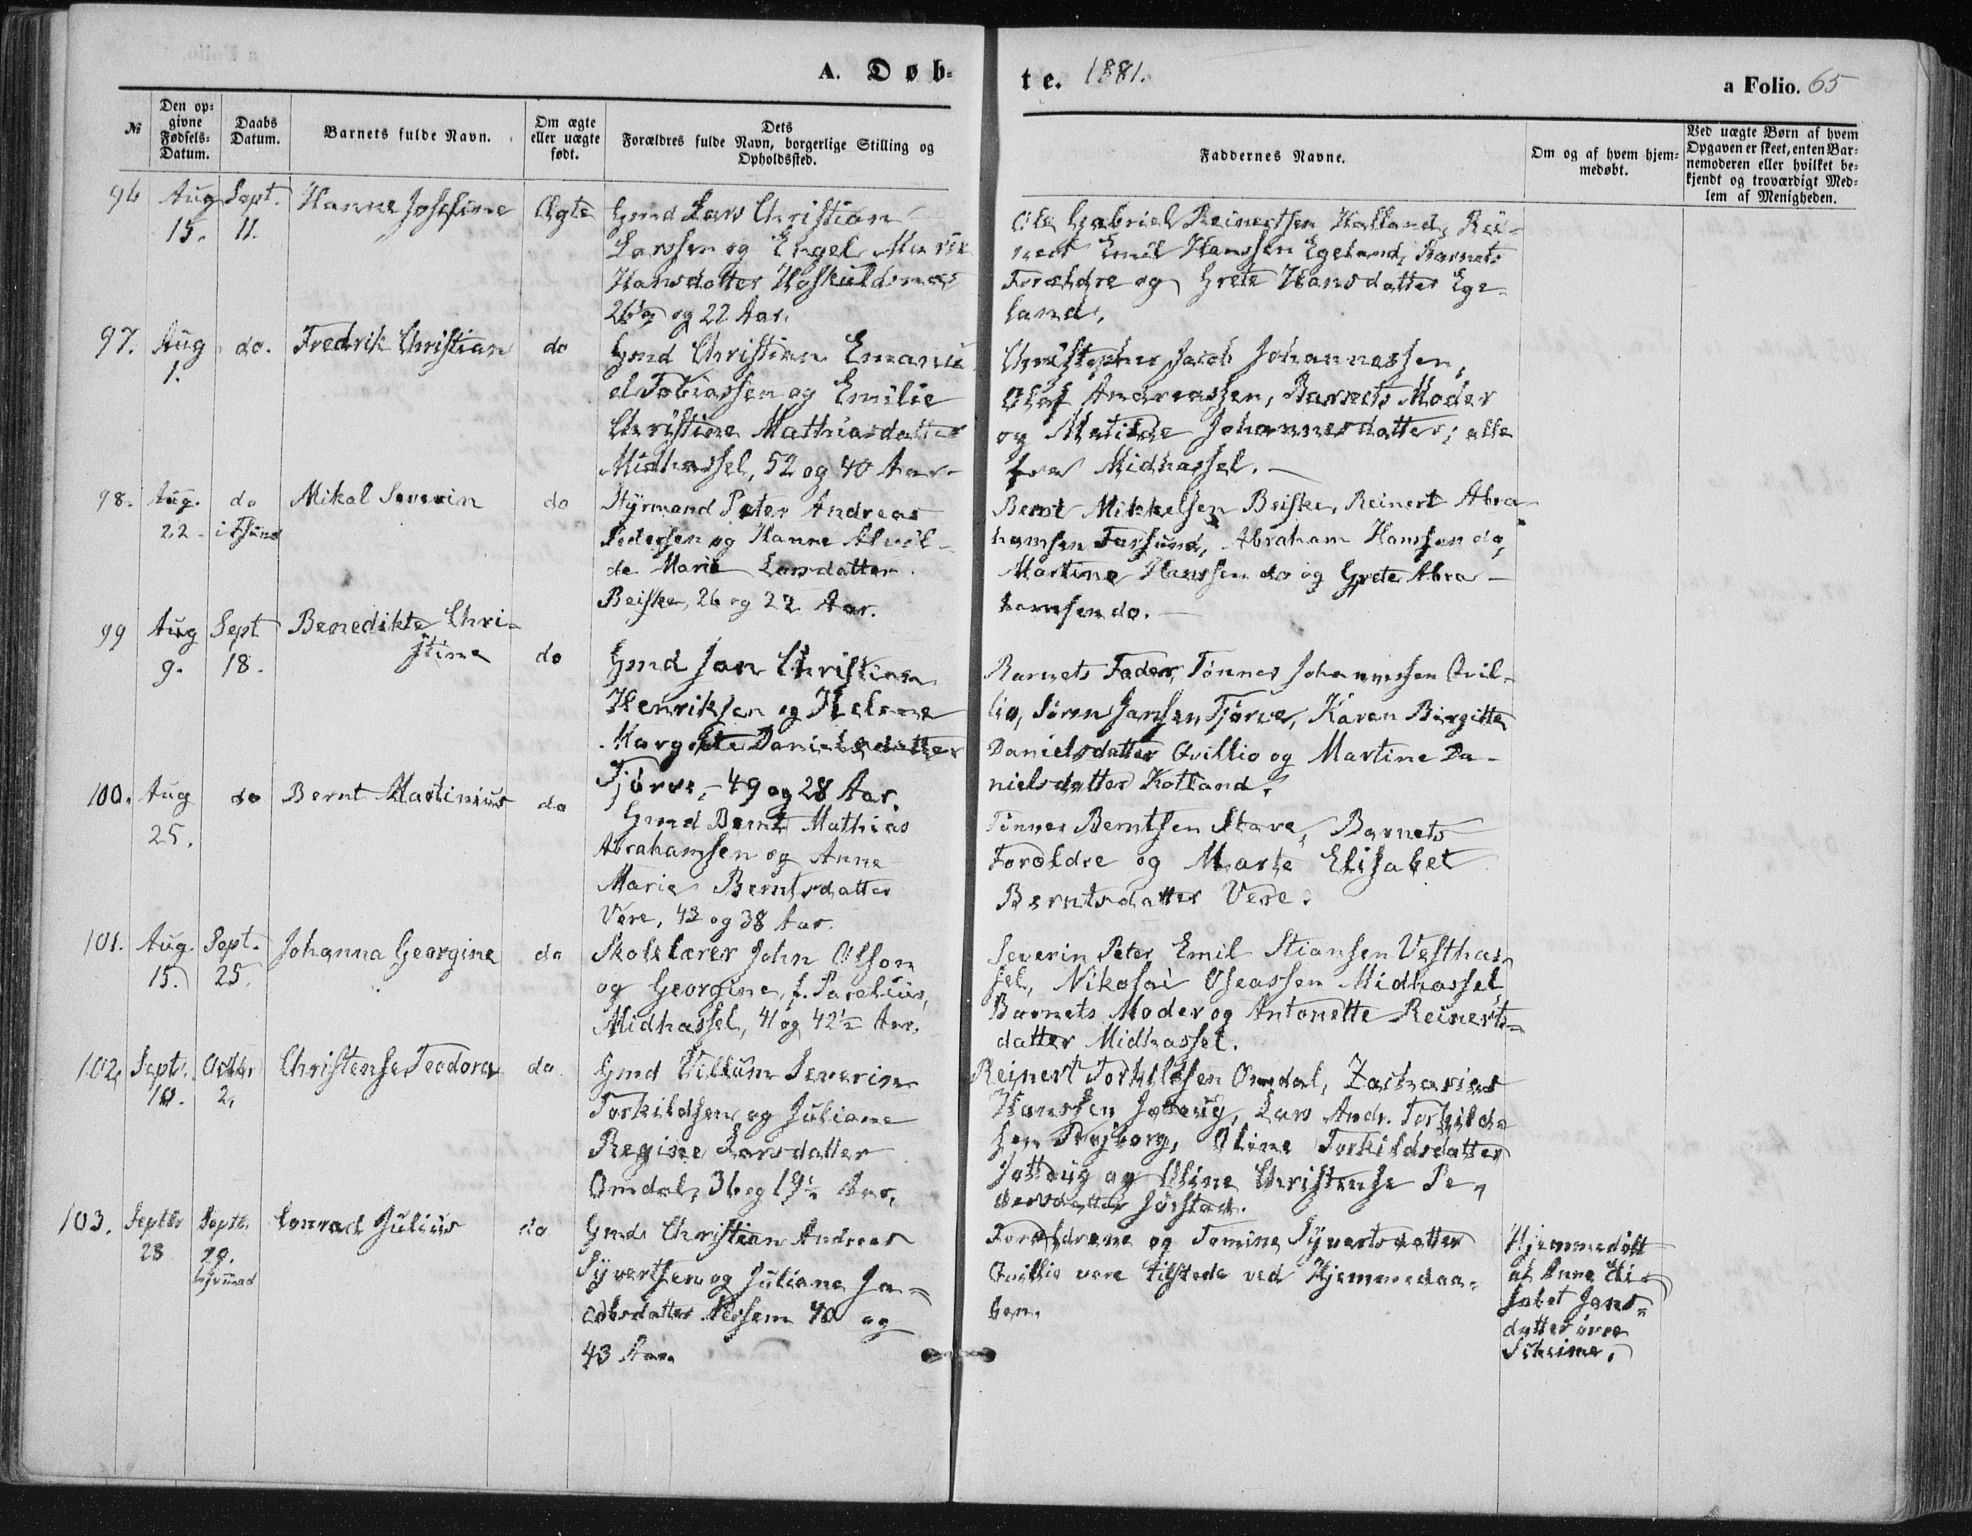 A. Døb-
te. 1881.
a Folio. 65
№
Den op-
givne
Fødsels-
Datum.
Daabs
Datum.
Barnets fulde Navn.
Om ægte
eller uægte
født.
Dets
Forældres fulde Navn, borgerlige Stilling og
Opholdssted.
Faddernes Navne.
Om og af hvem hjem-
medøbt.
Ved uægte Børn af hvem
Opgaven er skeet, enten Bar-
nemoderen eller hvilket be-
kjendt og troværdigt Med-
lem af Menigheden.
96 Aug 15. Sept. 11. Hanne Josefine Ægte
Gmd Lars Christian
Larssen og Engel Marie
Hansdatter Høskuldsnæs
og 22 Aar.
Ole Gabriel Reinertsen Hatland, Rei-
nert Emil Hanssen Egeland, Barnets
Forældre og Grete Hansdatter Ege-
land.
97. Aug 1. do. Fredrik Christian do
Gmd Christian Emanu
el Tobiassen og Emilie
Christine Mathiasdatter
Midhassel, 52 og 40 Aar.
Christopher Jacob Johannessen,
Olaf Andreassen, Barnets Moder
og Matilde Johannesdatter; alle
fra Midhassel.
98. Aug. 22. do i Fsund Mikal Severin do
Styrmand Peter Andreas
Pedersen og Hanne Alvil-
de Marie Larsdatter
Beiske, 26 og 22 Aar.
Bernt Mikkelsen Beiske, Reinert Abra-
hamsen Farsund, Abraham Hanssen do,
Martine Hanssen do og Grete Abra-
hamsen do.
99 Aug 9. Sept 18. Benedikte Chri-
stine do
Gmd Jan Christian
Henriksen og Helene
Margrete Danielsdatter
Tjørve, 49 og 28 Aar.
Barnets Fader, Tønnes Johannessen Qvil-
lio, Søren Jansen Tjørve, Karen Birgitte
Danielsdatter Qvillio og Martine Da-
nielsdatter Kotland.
100. Aug 25. do Bernt Martinius do
Gmd Bernt Mathias
Abrahamsen og Anne
Marie Berntsdatter
Vere, 43 og 38 Aar.
Tønnes Berntsen Stave, Barnets
Forældre og Marte Elisabet
Berntsdatter Vere.
101. Aug. 15. Sept. 25. Johanna Georgine do
Skolelærer John Olson
og Georgine, f. Parelius,
Midhassel, 41 og 42½ Aar.
Severin Peter Emil Stiansen Vesthas-
sel, Nikolai Oseassen Midhassel
Barnets Moder og Antonette Reinerts-
datter Midhassel.
102. Septr. 10. Octbr 2. Christense Teodora do
Gmd Villum Severin
Torkildsen og Juliane
Regine Larsdatter
Omdal, 36 og 19½ Aar.
Reinert Torkildsen Omdal, Zacharias
Hanssen Jøllaug, Lars Andr. Torkild-
sen Røjborg, Oline Torkildsdatter
Jøllaug og Oline Christense Pe-
dersdatter Jørstad.
103. Septbr 28 Septbr. 29. Conrad Julius do
Gmd Christian Andreas
Syvertsen og Juliane Ja-
cobsdatter Nessem 40 og
43 Aar.
Forældrene og Tomine Syvertsdatter
Qvillio vare tilstede ved Hjemmedaa-
ben.
Hjemmedøbt
af Anne Eli-
sabet Jans-
datter øvre
Skeime.